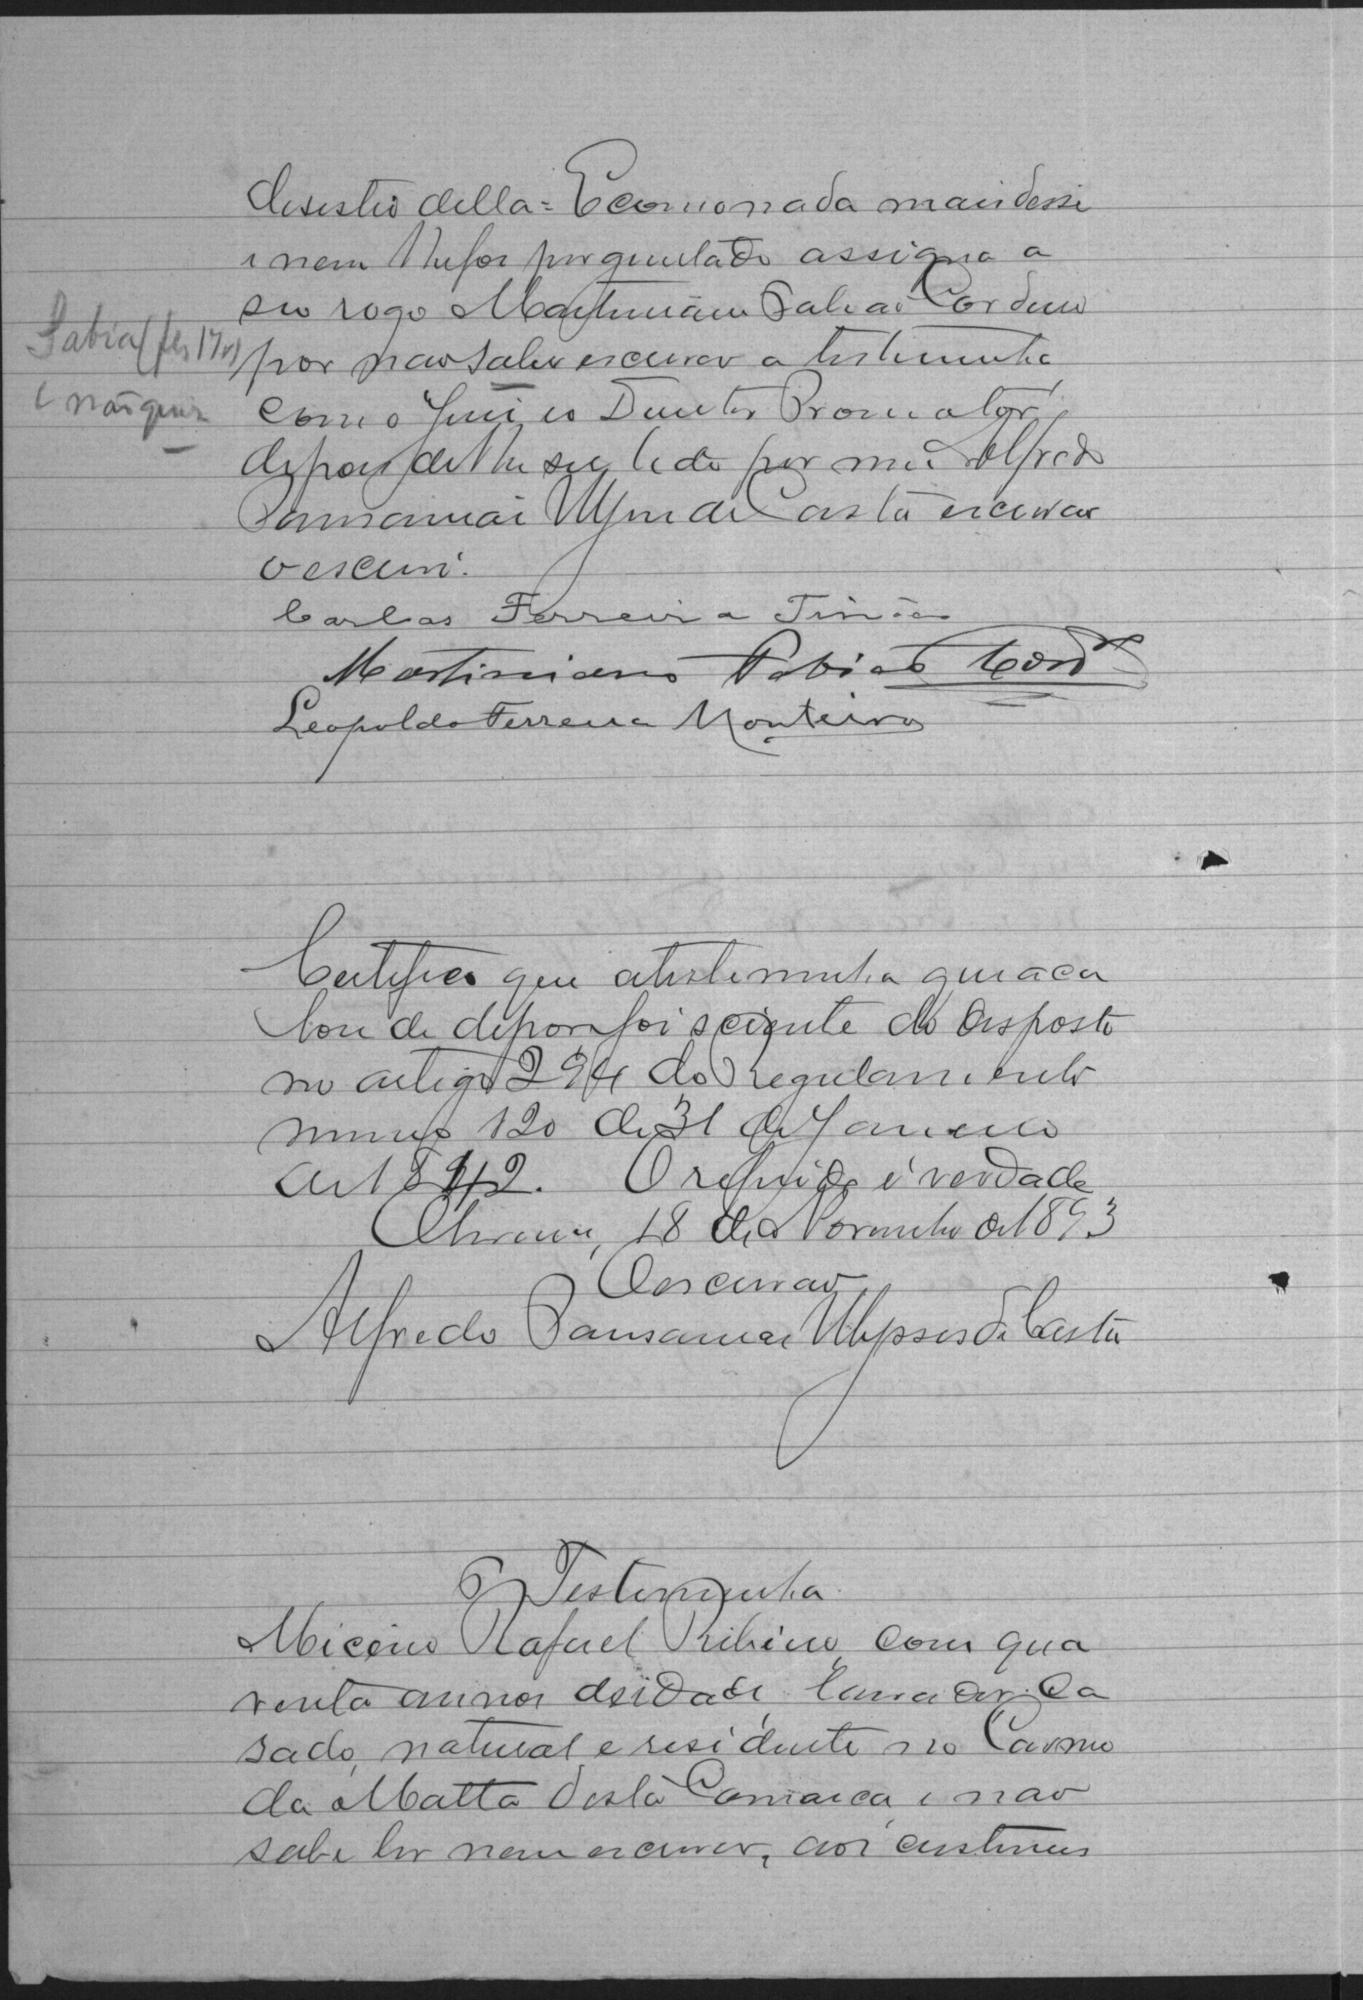 desistio della = E como nada mais disse
e nem lhe foi perguntado assigna a
seo rogo Martiniano Cordeiro
por nao saber escrever a testemunha
Sabia (fls 17v)
e não quiz
com o Juiz e o Doutor Promotor,
depois de lhe ser lido por mim Alfredo
Pansanias Ulysses de Costa escrivao
o escrevi.
Carlos Ferreira Tinôco
Martiniano Cord
Leopoldo Ferreira Monteiro
Certifico que a testemunha que aca
bou de depor foi sciente do disposto
no artigo 294 do Regulamento
numero 120 de 31 de Janeiro
de 1842. O referido é verdade
18 de Novembro de 1893
O escrivao
Alfredo Pansanias Ulysses de Costa
6ª Testemunha
Rafael Ribeiro, com qua
renta annos de idade, lavrador, ca
sado, natural e residente no Carmo
da Matta desta Comarca, e nao
sabe ler nem escrever, aos custumes